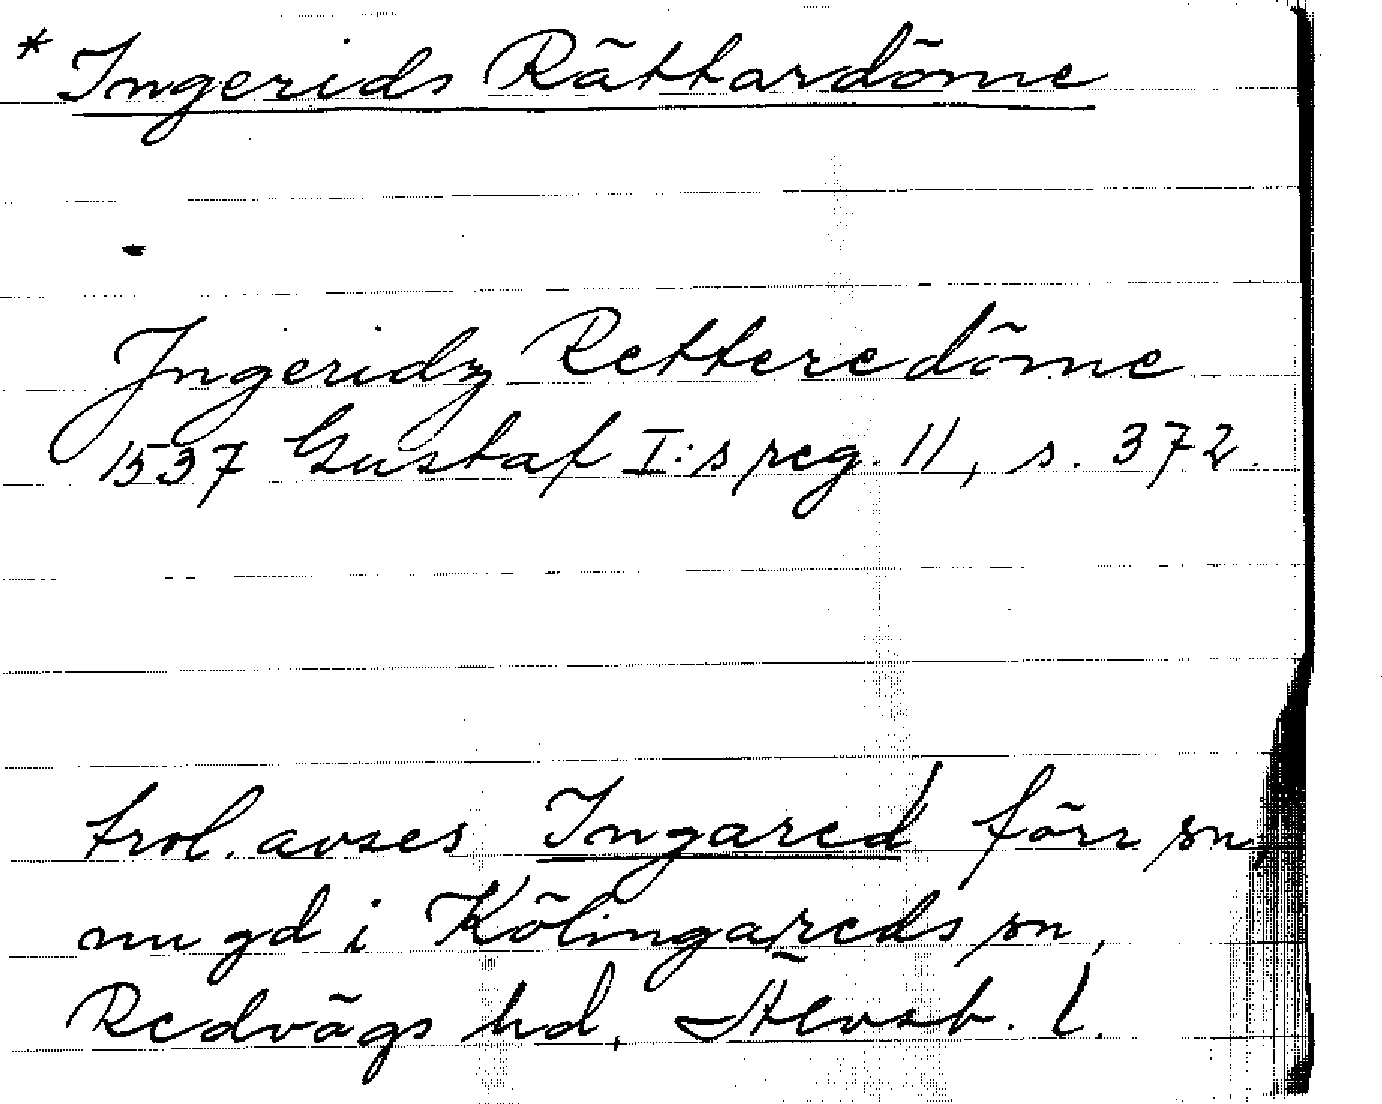 * Ingerids Rättardöme
Jngeridz Retteredöme
1537 Gustaf I:s reg. 11, s. 372.
trol. avses Ingared förr sn,
nu gd i Kölingareds sn,
Redvägs hd, Älvsb. l.